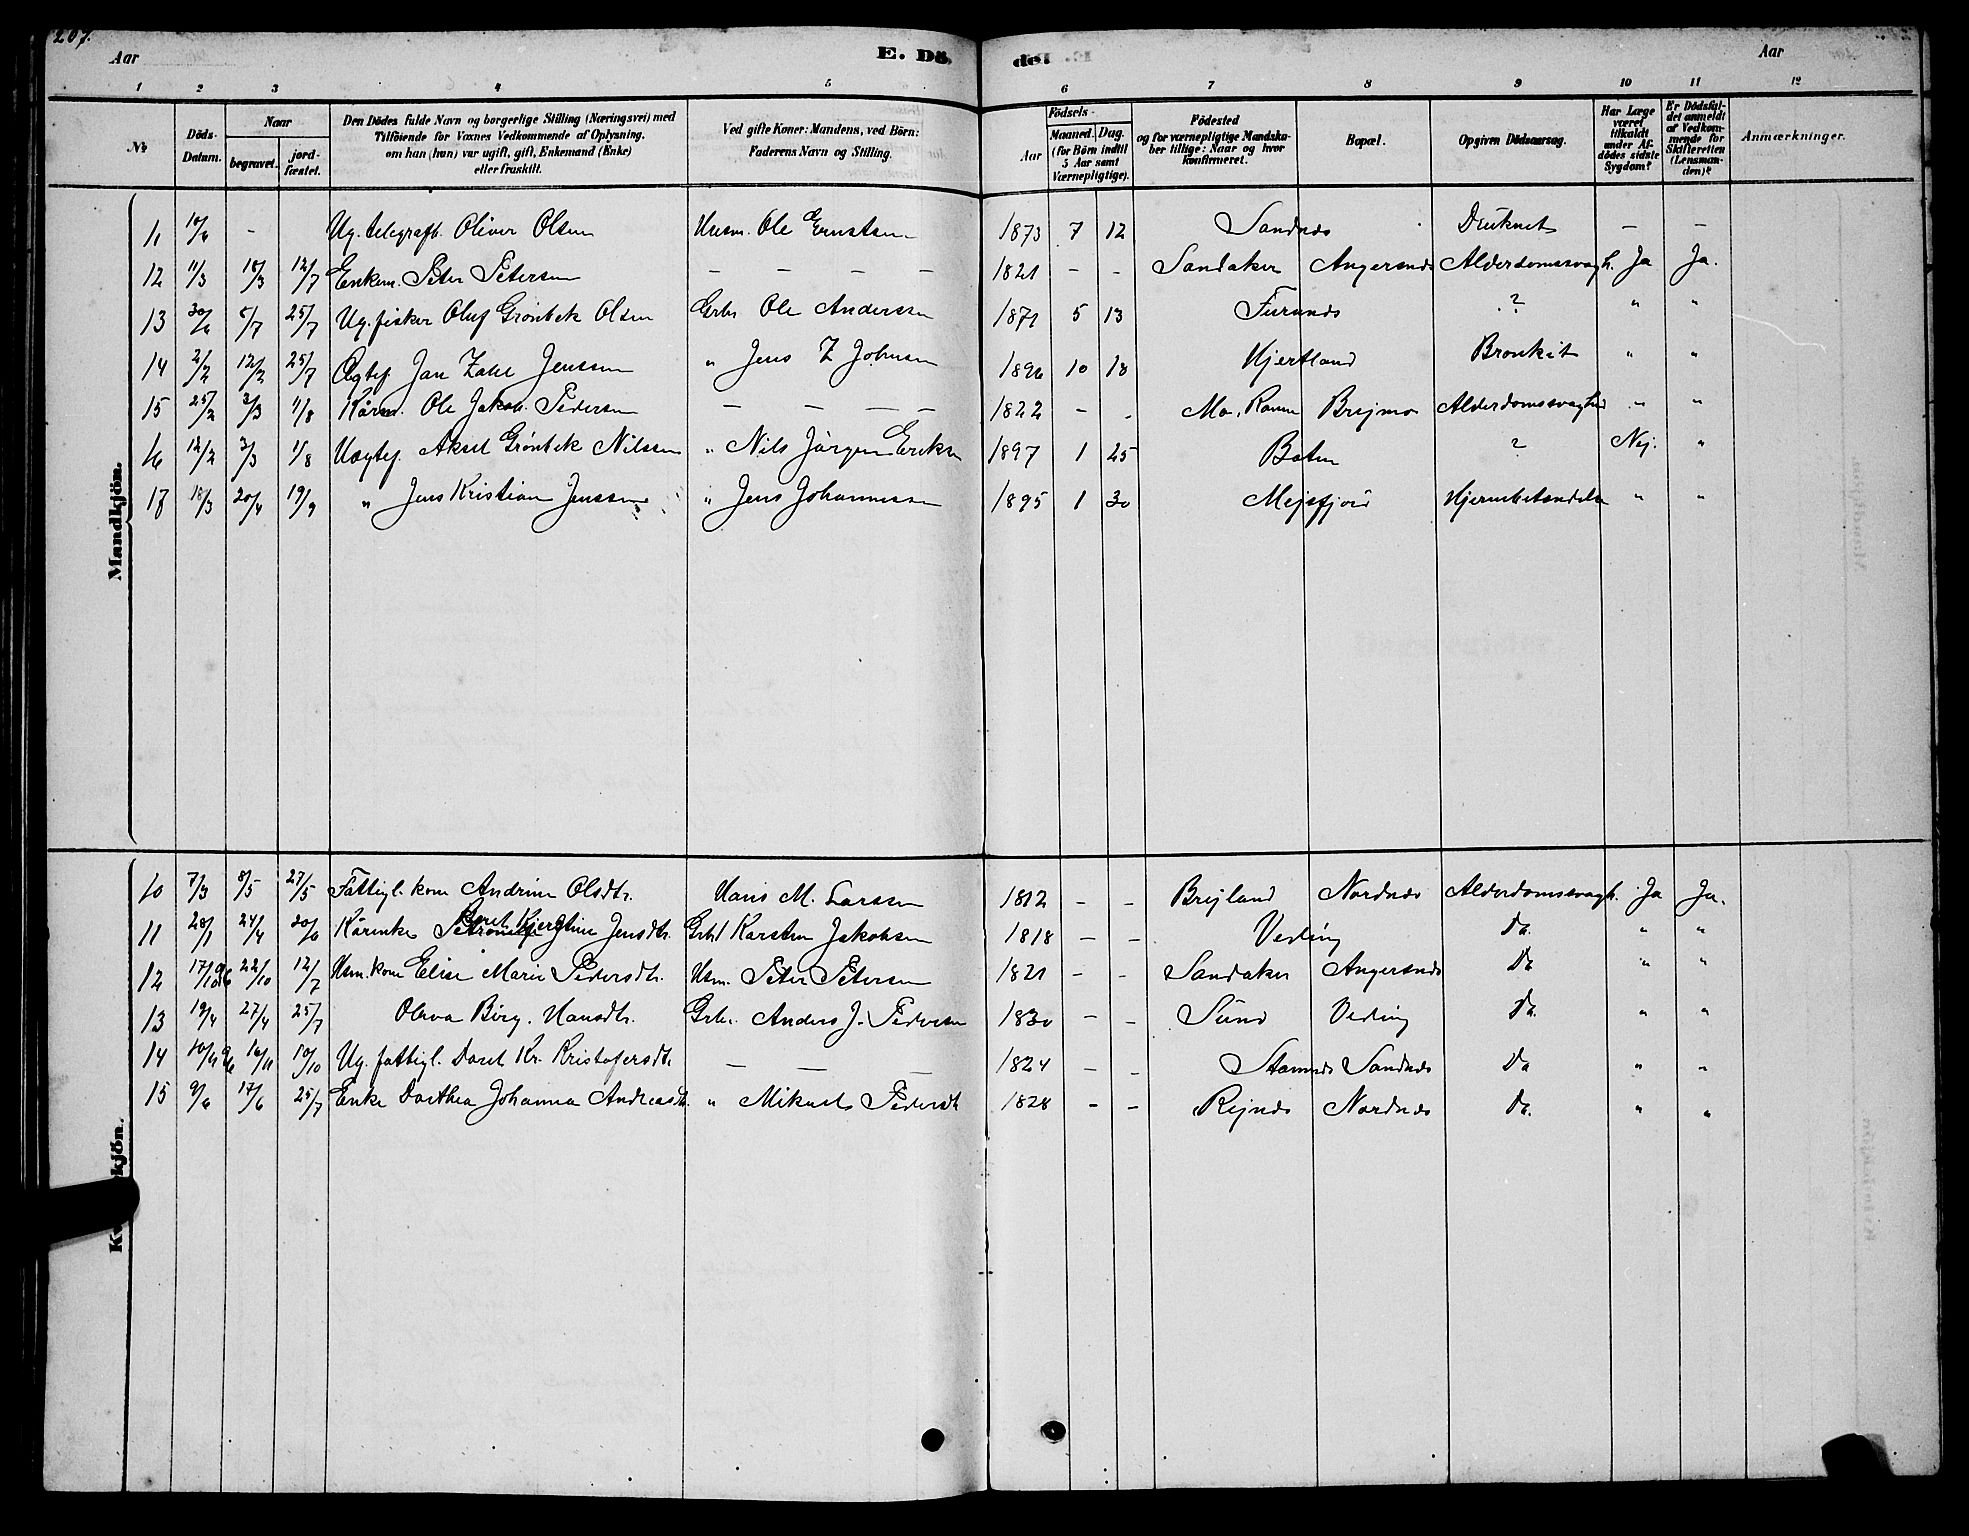 207.
Aar E. Dö- de. Aar
1 2 3 4 5 6 7 8 9 10 11 12
№ Döds-Datum. Naar begravet. jord-fæstet. Den Dödes fulde Navn og borgerlige Stilling (Næringsvei) med Tilföiende for Voxnes Vedkommende af Oplysning, om han (hun) var ugift, gift, Enkemand (Enke) eller fraskilt. Ved gifte Koner: Mandens, ved Börn: Faderens Navn og Stilling. Födsels- Aar Maaned. Dag. (for Börn indtil 5 Aar samt Værnepligtige). Födested og for værnepligtige Mandskaber tillige: Naar og hvor konfirmeret. Bopæl. Opgiven Dödsaarsag. Har Læge været tilkaldt under Afdödes sidste Sygdom? Er Dödsfaldet anmeldt af Vedkommende for Skifteretten (Lensmanden)? Anmærkninger.
Mandkjön.
11 10/6 - Ug. telegrafb. Oliver Olsen Husm. Ole Ernstsen 1873 7 12 Sandnes Druknet - -
12 11/3 18/3 12/7 Enkem. Peter Petersen - - - - 1821 - - Sandaker Angersnes Alderdomssvagh. Ja Ja.
13 30/6 5/7 25/7 Ug. fisker Oluf Grønbek Olsen Grbr Ole Anderssen 1871 5 13 Furunes ? " "
14 2/2 12/2 25/7 Ægtef Jan Zahl Jenssen " Jens Z Johnsen 1896 10 18 Hjertland Bronkit " "
15 25/2 3/3 1/8 Kårm. Ole Jakob Pedersen - - - - 1822 - - Mo, Ranen Brejmo Alderdomssvaghed " "
16 12/2 3/3 1/8 Uægtef. Aksel Grønbek Nilssen " Nils Jörgen Eriksen 1897 1 25 Boten ? Nej. "
17 18/3 20/4 19/9 " Jens Kristian Jenssen " Jens Johannessen 1895 1 30 Mejsfjord Hjernebetændelse " "
Kvindekjön.
10 7/3 8/5 27/5 Fattigl. kone Andrine Olsdtr. Hans M. Larssen 1812 - - Brejland Nordnes Alderdomssvagh. Ja Ja.
11 28/1 24/4 20/6 Kårenke Jensdtr. Grbr Karsten Jakobsen 1818 - - Veding Do. " "
12 17/10 96 22/10 12/7 Hsm. kone Elise Marie Pedersdtr. Hsm. Peter Petersen 1821 - - Sandaker Angersnes Do " "
13 19/4 27/4 25/7 Olava Berg. Hansdtr. Grbr. Anders J. Pedersen 1830 - - Sund Veding Do. " "
14 10/9 96 16/9 10/10 Ug. fattigl. Doret Kr. Kristofersdtr - - - 1824 - - Stamnes Sandnes Do " "
15 9/6 17/6 25/7 Enke Dorthea Johanna Andreasdtr. " Mikael Pedersen 1828 - - Rejnes Nordnes Do. " "